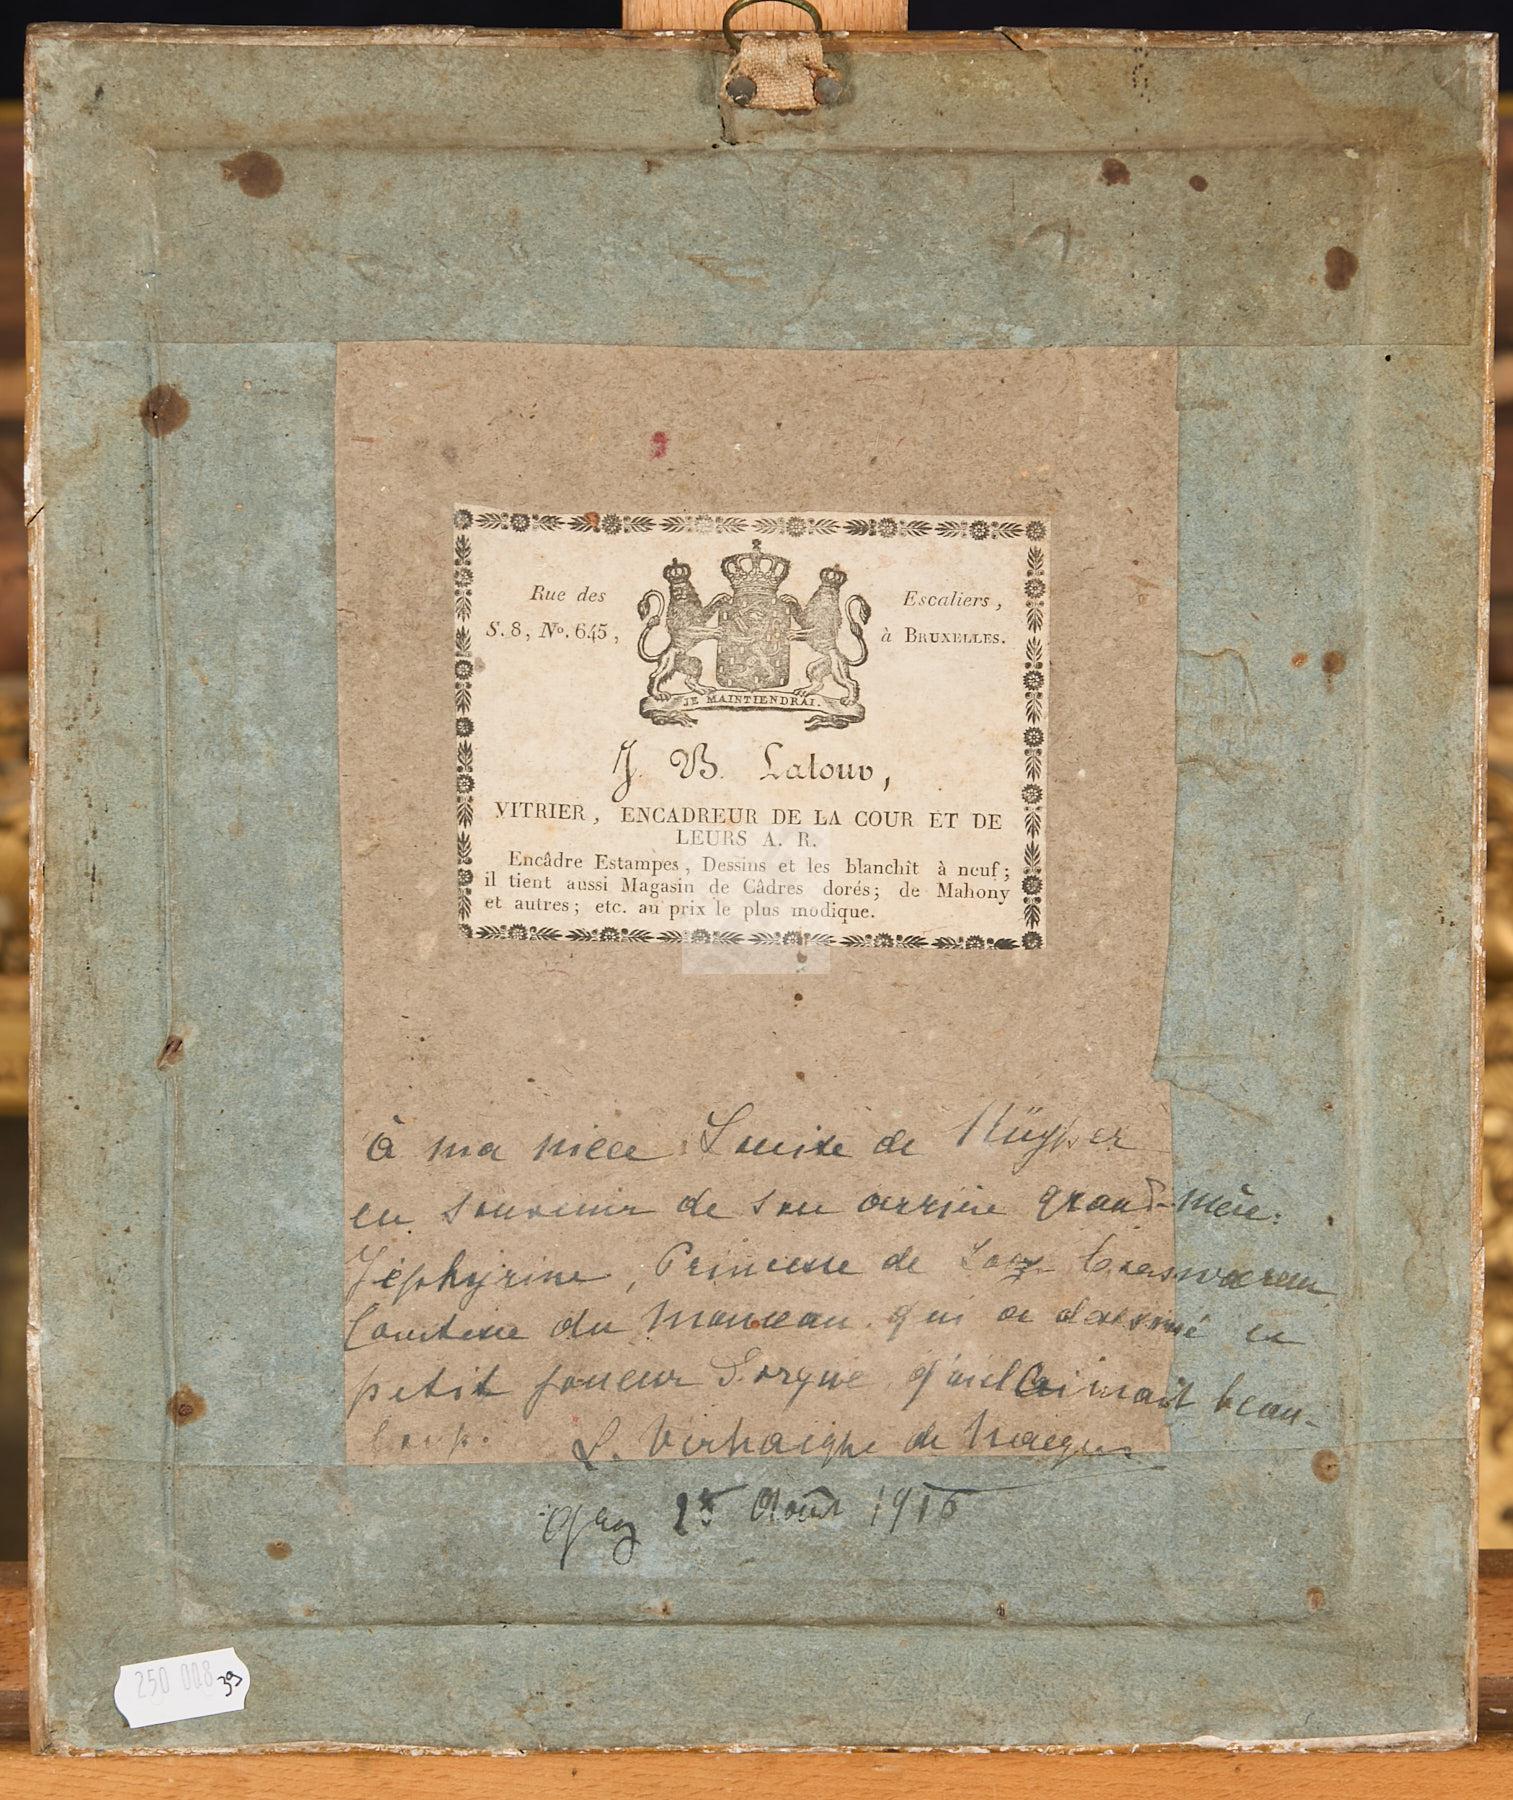 Rue des Escaliers,
S. 8, No. 645, à BRUXELLES.
JE MAINTIENDRAI.
J. B. Latour,
VITRIER, ENCADREUR DE LA COUR ET DE
LEURS A. R.
Encâdre Estampes, Dessins et les blanchît à neuf;
il tient aussi Magasin de Câdres dorés; de Mahony
et autres; etc. au prix le plus modique.
à ma nièce Louise de
en souvenir de son arrière grand-mère:
Zéphyrine, Princesse de Looz Corswarem
Comtesse du Monceau qui a dessiné ce
petit joueur d'orgue qu'elle aimait beau-
coup. L. Verhaeghe de Naeyer
25 Août 1916
250 008 39